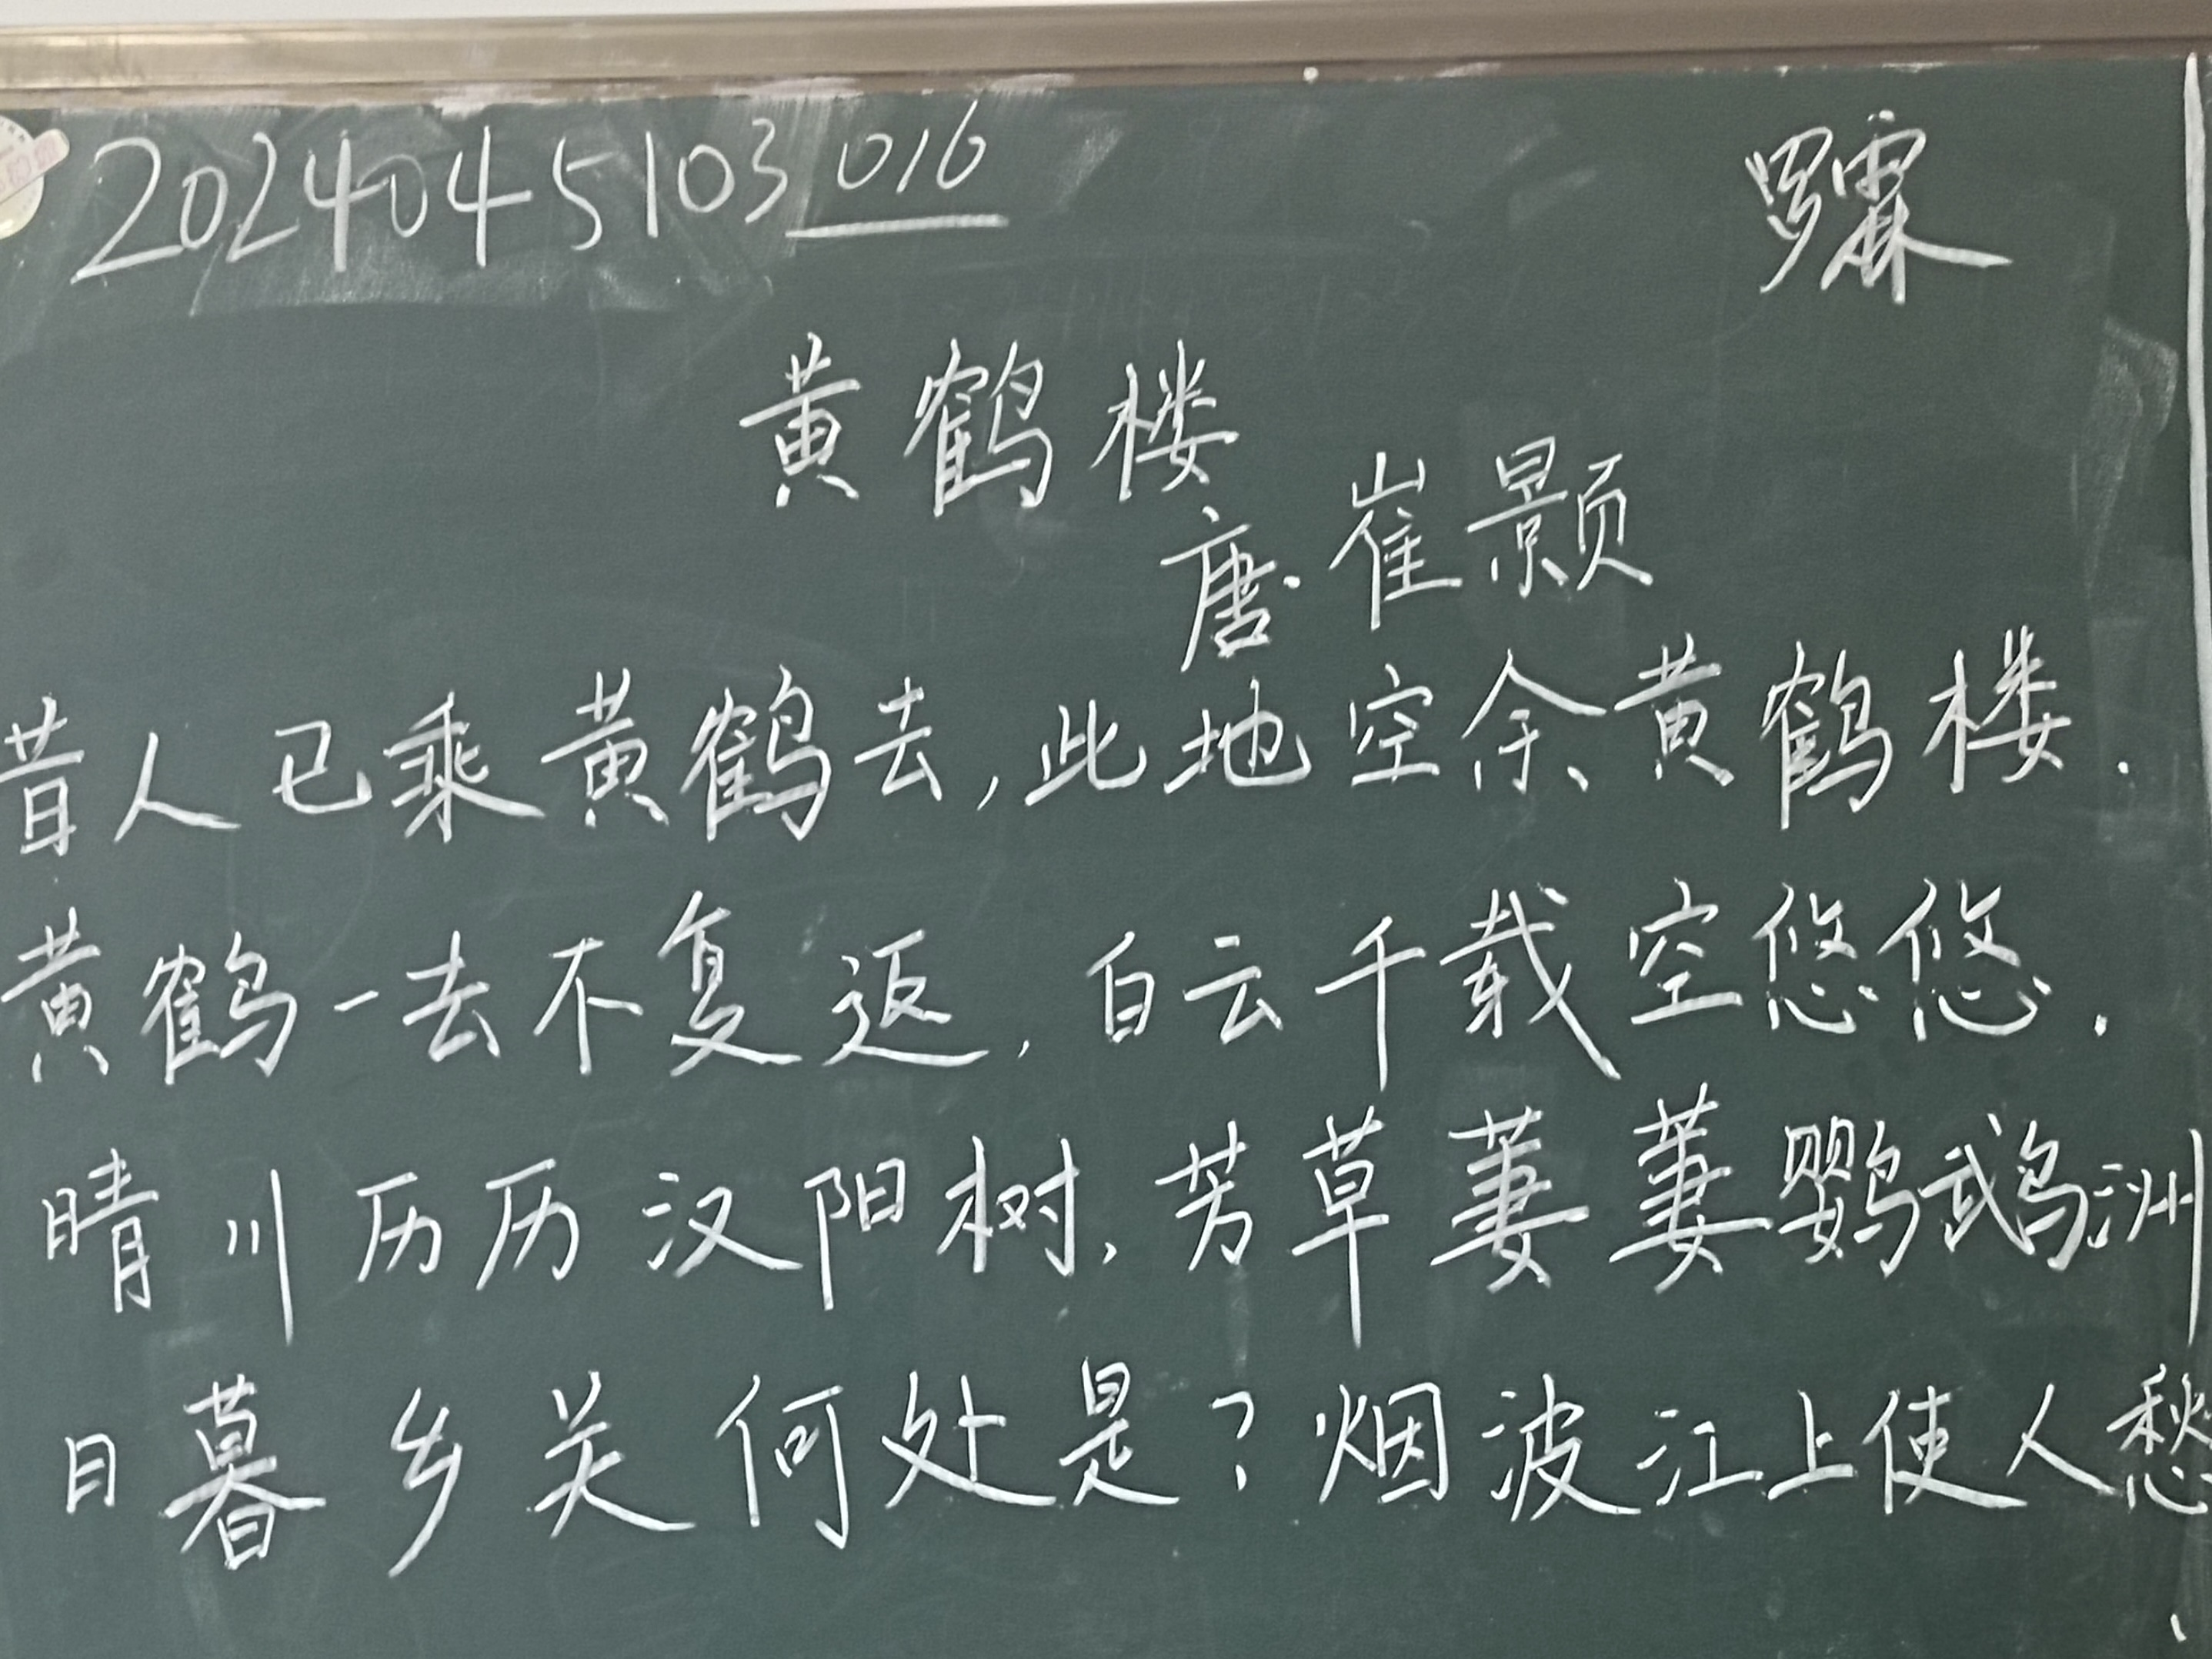 2024045103016 罗霖
黄鹤楼
唐·崔颢
昔人已乘黄鹤去,此地空余黄鹤楼.
黄鹤一去不复返,白云千载空悠悠.
晴川历历汉阳树,芳草萋萋鹦鹉洲
日暮乡关何处是?烟波江上使人愁